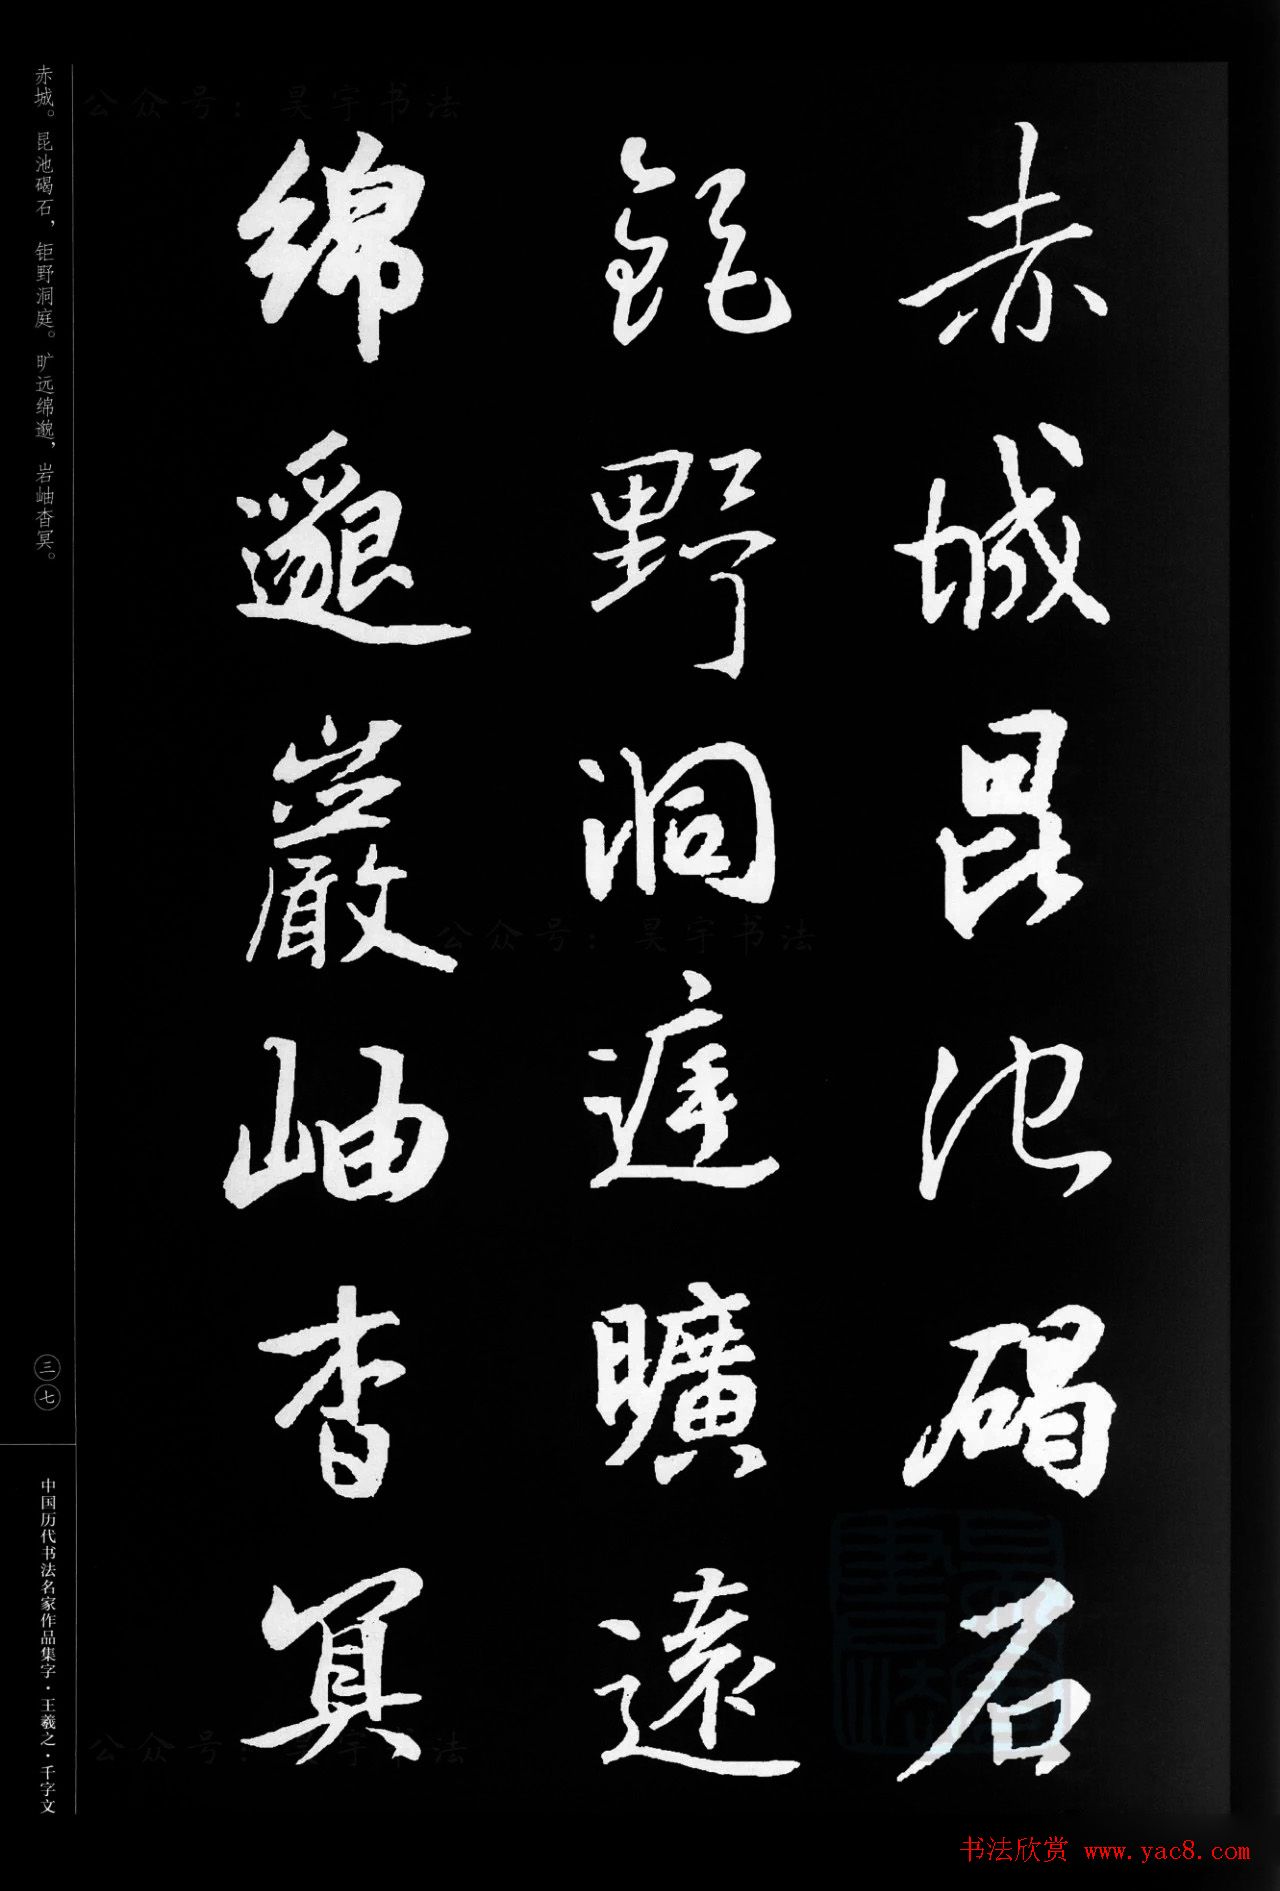 赤城昆池碣石
鉅野洞庭曠遠
綿邈巖岫杳冥
赤城。昆池碣石，钜野洞庭。旷远绵邈，岩岫杳冥。
三七
中国历代书法名家作品集字·王羲之·千字文
公众号：昊宇书法
公众号：昊宇书法
公众号：昊宇书法
书法欣赏 www.yac8.com